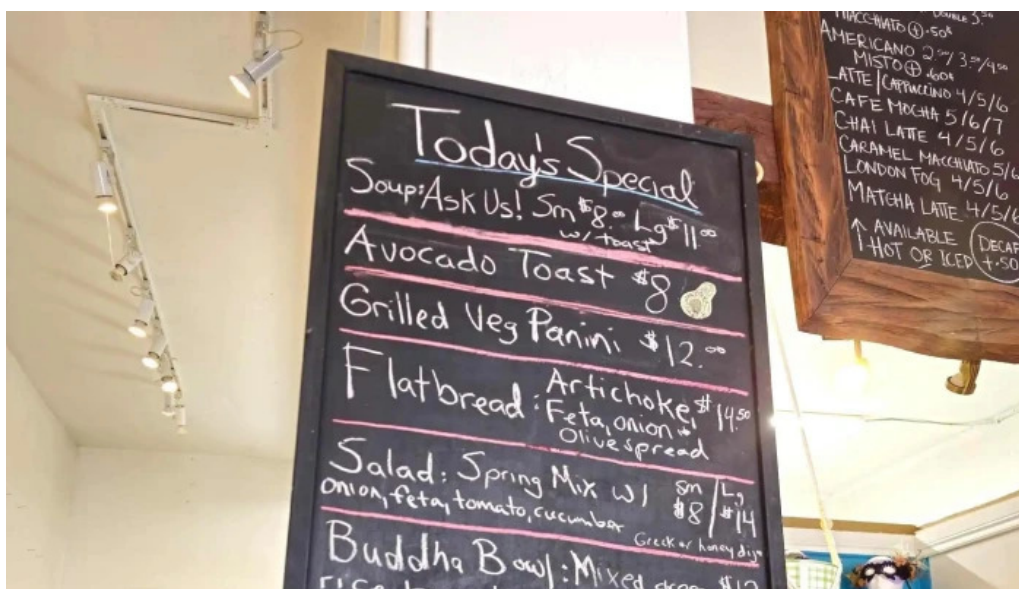 Today's Special
Soup: Ask Us! Sm $8.00 Lg $11.00
w/ toast
Avocado Toast $8
Grilled Veg Panini $12.00
Flatbread: Artichoke, $14.50
Feta, onion +
Olive spread
Salad: Spring Mix w/ Sm / Lg
onion, feta, tomato, cucumber $8 / $14
Greek or honey dijo
Buddha Bowl: Mixed
MACCHIATO + .50¢
AMERICANO 2.00/3.50/4.50
MISTO + .60¢
LATTE/CAPPUCCINO 4/5/6
CAFE MOCHA 5/6/7
CHAI LATTE 4/5/6
CARAMEL MACCHIATO 5/6
LONDON FOG 4/5/6
MATCHA LATTE 4/5/6
↑ AVAILABLE
HOT OR ICED
DECAF
+.50